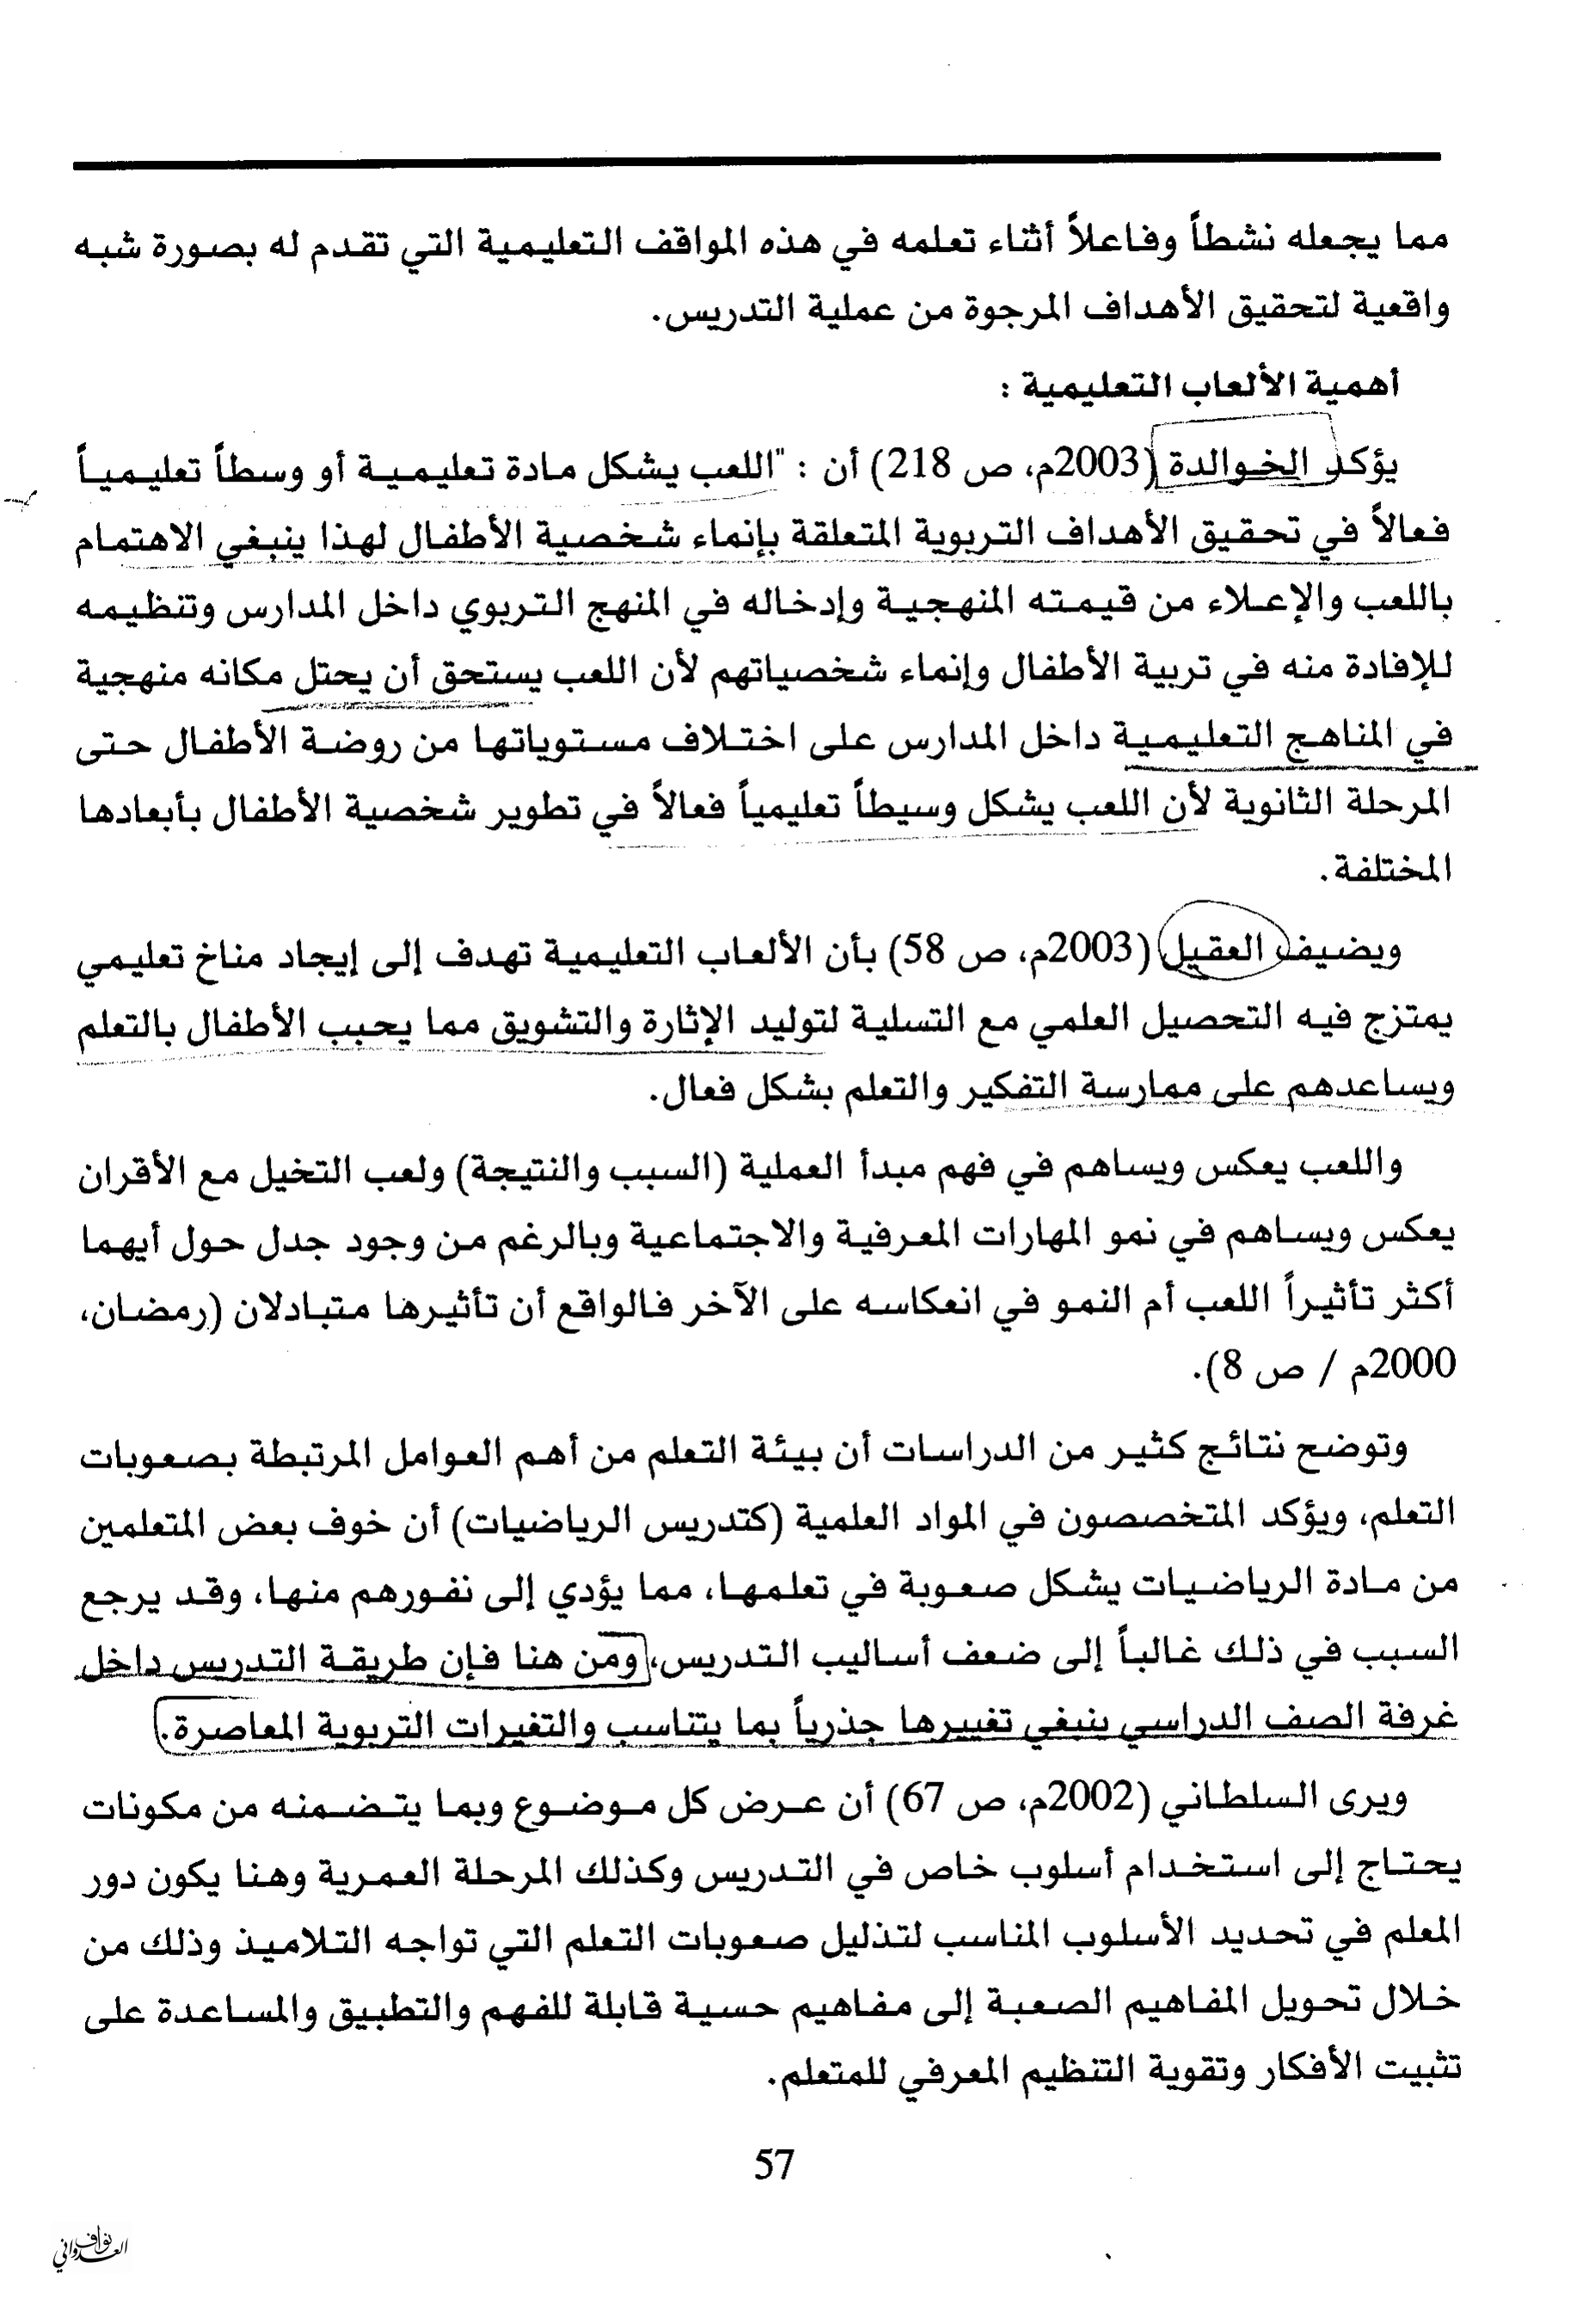 مما يجعله نشطاً وفاعلاً أثناء تعلمه في هذه المواقف التعليمية التي تقدم له بصورة شبه
واقعية لتحقيق الأهداف المرجوة من عملية التدريس.
أهمية الألعاب التعليمية :
يؤكد الخوالدة (2003م، ص 218) أن : "اللعب يشكل مادة تعليمية أو وسطاً تعليمياً
فعالاً في تحقيق الأهداف التربوية المتعلقة بإنماء شخصية الأطفال لهذا ينبغي الاهتمام
باللعب والإعلاء من قيمته المنهجية وإدخاله في المنهج التربوي داخل المدارس وتنظيمه
للإفادة منه في تربية الأطفال وإنماء شخصياتهم لأن اللعب يستحق أن يحتل مكانه منهجية
في المناهج التعليمية داخل المدارس على اختلاف مستوياتها من روضة الأطفال حتى
المرحلة الثانوية لأن اللعب يشكل وسيطاً تعليمياً فعالاً في تطوير شخصية الأطفال بأبعادها
المختلفة.
ويضيف العقيل (2003م، ص 58) بأن الألعاب التعليمية تهدف إلى إيجاد مناخ تعليمي
يمتزج فيه التحصيل العلمي مع التسلية لتوليد الإثارة والتشويق مما يحبب الأطفال بالتعلم
ويساعدهم على ممارسة التفكير والتعلم بشكل فعال.
واللعب يعكس ويساهم في فهم مبدأ العملية (السبب والنتيجة) ولعب التخيل مع الأقران
يعكس ويساهم في نمو المهارات المعرفية والاجتماعية وبالرغم من وجود جدل حول أيهما
أكثر تأثيراً اللعب أم النمو في انعكاسه على الآخر فالواقع أن تأثيرها متبادلان (رمضان،
2000م / ص 8).
وتوضح نتائج كثير من الدراسات أن بيئة التعلم من أهم العوامل المرتبطة بصعوبات
التعلم، ويؤكد المتخصصون في المواد العلمية (كتدريس الرياضيات) أن خوف بعض المتعلمين
من مادة الرياضيات يشكل صعوبة في تعلمها، مما يؤدي إلى نفورهم منها، وقد يرجع
السبب في ذلك غالباً إلى ضعف أساليب التدريس، ومن هنا فإن طريقة التدريس داخل
غرفة الصف الدراسي ينبغي تغييرها جذرياً بما يتناسب والتغيرات التربوية المعاصرة.
ويرى السلطاني (2002م، ص 67) أن عرض كل موضوع وبما يتضمنه من مكونات
يحتاج إلى استخدام أسلوب خاص في التدريس وكذلك المرحلة العمرية وهنا يكون دور
المعلم في تحديد الأسلوب المناسب لتذليل صعوبات التعلم التي تواجه التلاميذ وذلك من
خلال تحويل المفاهيم الصعبة إلى مفاهيم حسية قابلة للفهم والتطبيق والمساعدة على
تثبيت الأفكار وتقوية التنظيم المعرفي للمتعلم.
57
نواف العدواني